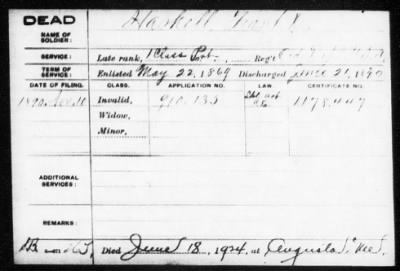 DEAD
NAME OF SOLDIER:
Haskell
SERVICE:
Late rank, 1 Class Pvt. Reg't
TERM OF SERVICE:
Enlisted May 22, 1869 Discharged June 21, 1890
DATE OF FILING. CLASS. APPLICATION NO. LAW CERTIFICATE NO.
1890 Invalid, 910.135 1178.447
Widow,
Minor,
ADDITIONAL SERVICES:
REMARKS:
Died June 18, 1924, at Augusta, Me.